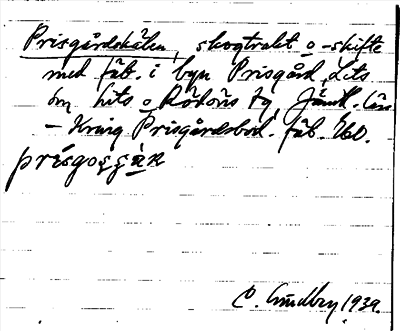 Prisgårdskälen, skogtrakt o -skifte
med fäb. i byn Prisgård, Lits
sn, Lits o Rödöns tg, Jämtl. län
– Kring Prisgårdsbod. fäb. Ebl.
C. Lindberg 1939.